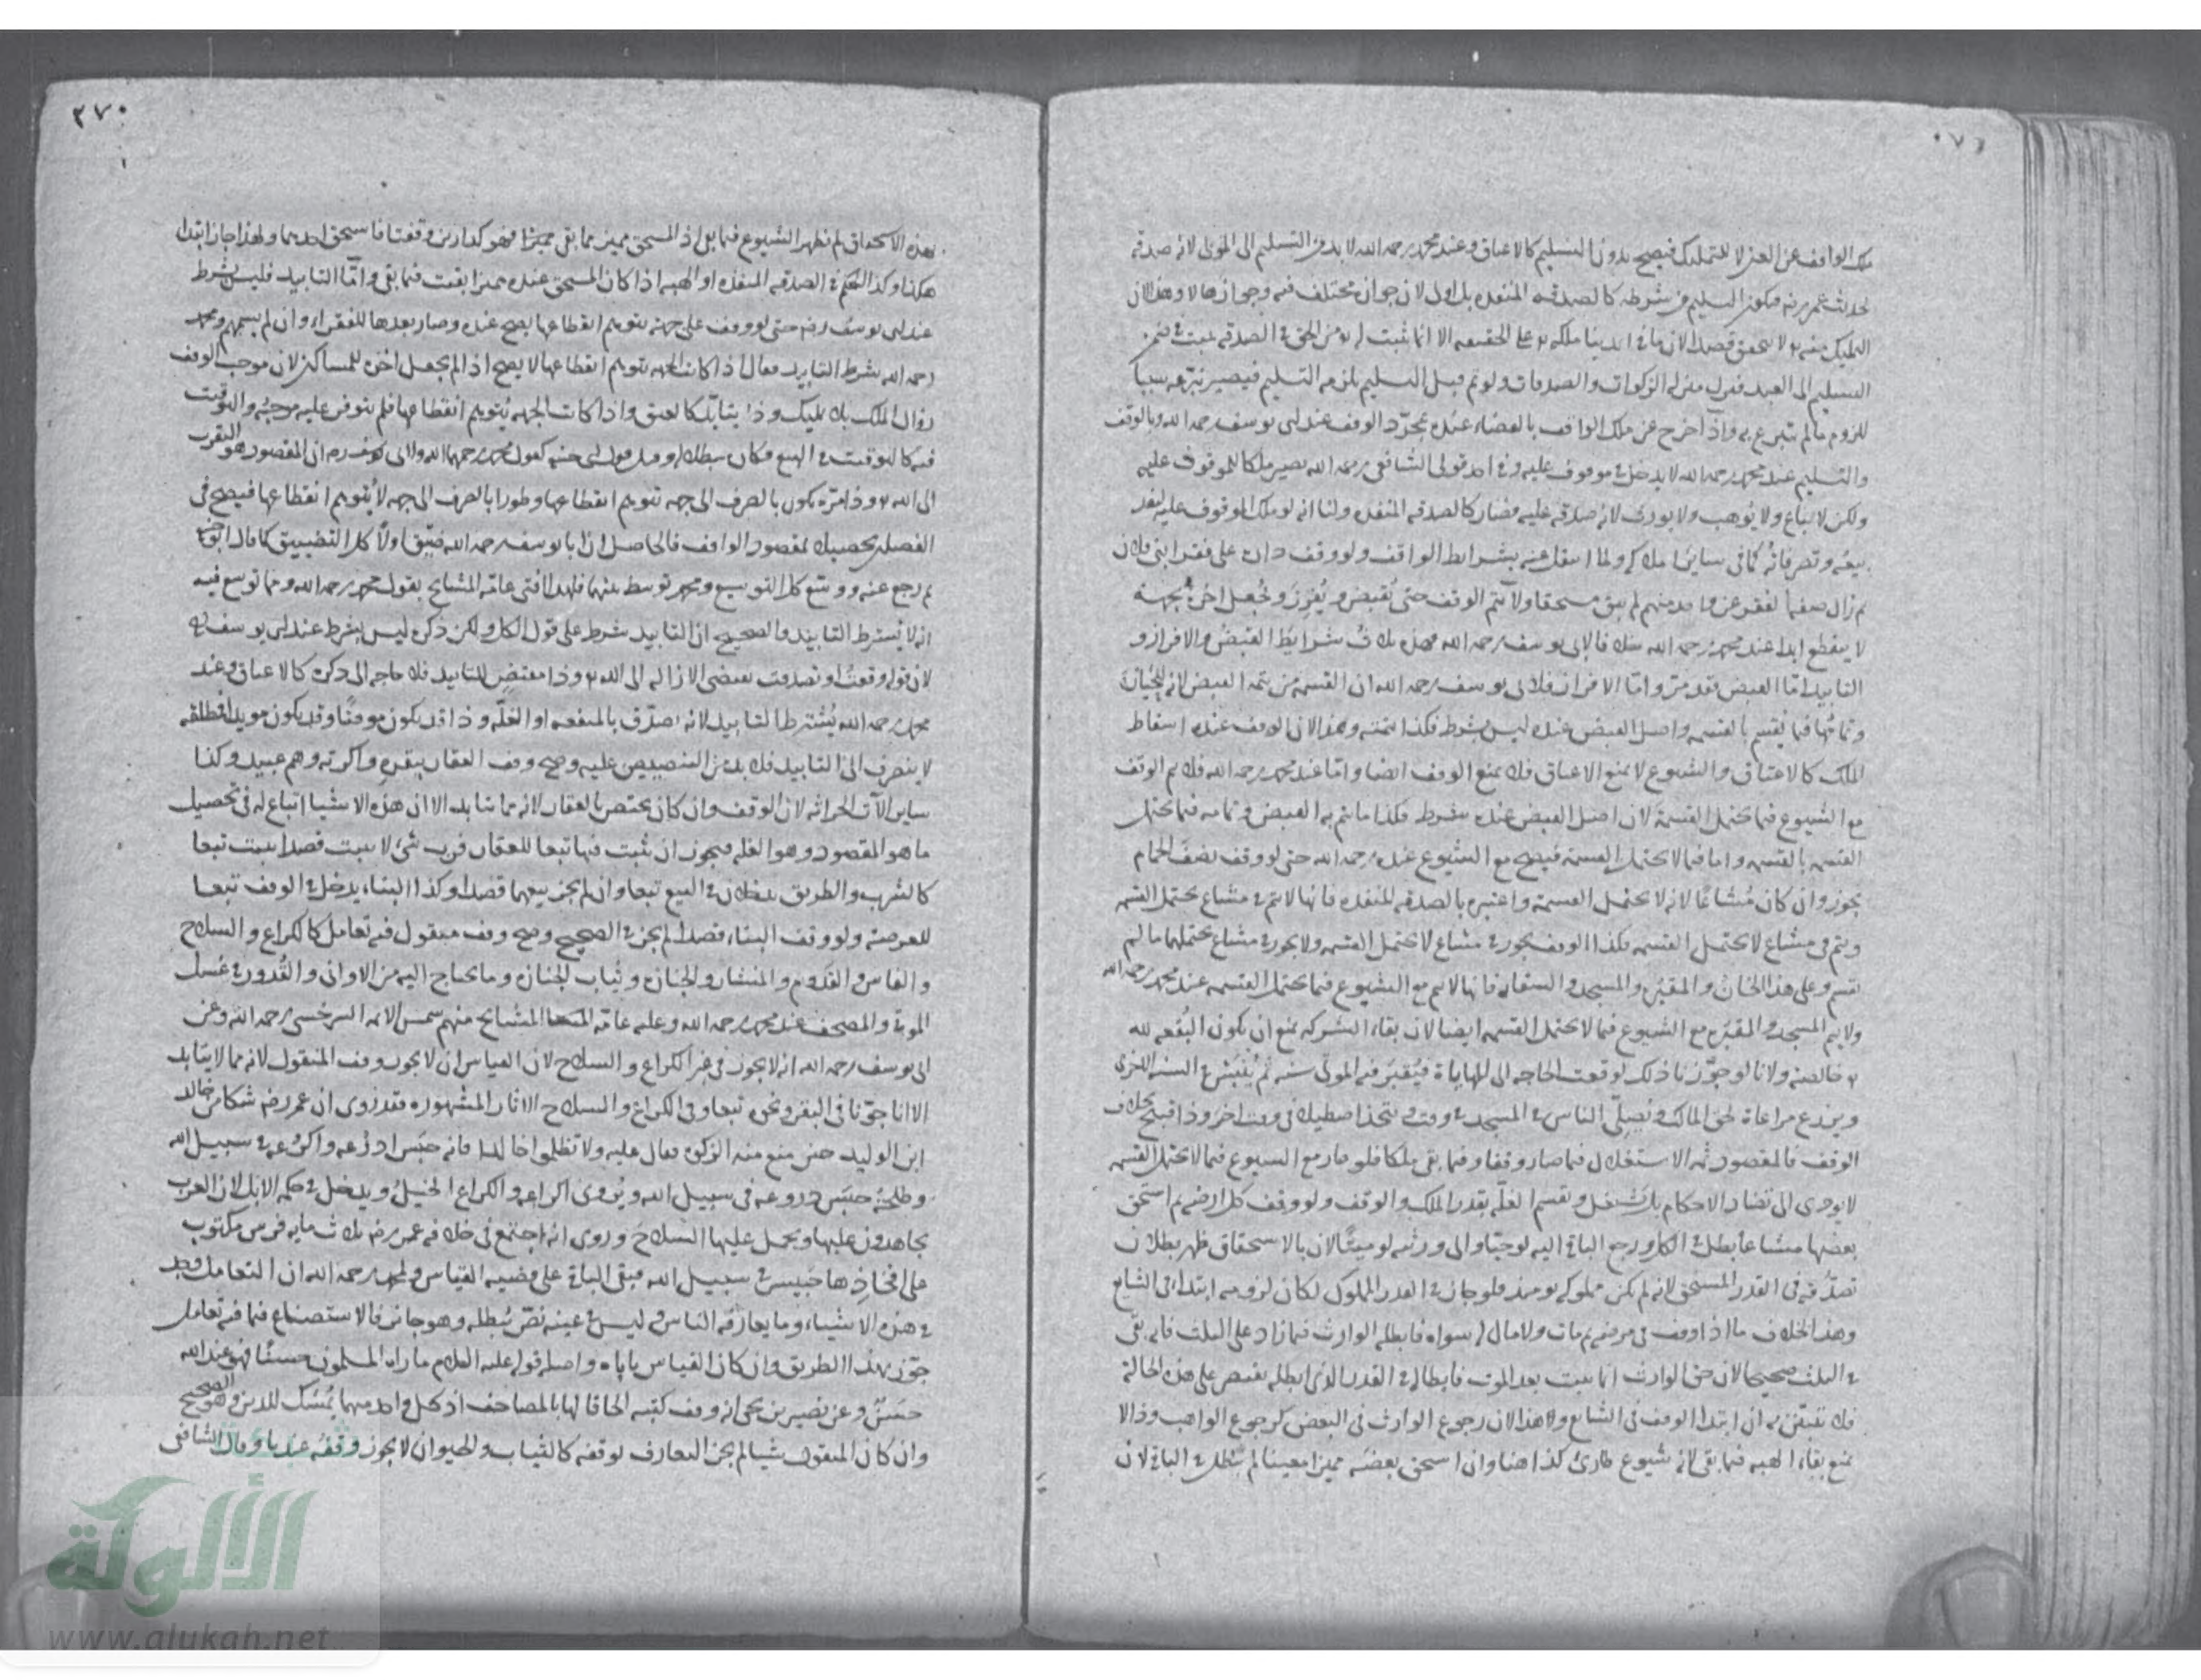 ملك الواقف عن العين لا للتمليك فيصح بدون التسليم كالاعتاق وعند محمد رحمه الله لا بد من التسليم الى المتولى لانه صدقة
لحديث عمر رضه فيكون التسليم من شرطه كالصدقة المنفذه بل اولى لان جوازه مختلف فيه وجوازها لا وهذا لان
التمليك منه تع لا يتحقق قصدا لانه مالك الدنيا ملكه تع على الحقيقه الا انما يثبت له تع من الحق في الصدقه يثبت في ضمن
التسليم الى العبد فنزل منزله الزكوات والصدقات ولو تم قبل التسليم يلزمه التسليم فيصير تبرعه سببا
للزوم مالم يتبرع به واذا خرج عن ملك الواقف بالقضاء عنده بمجرد الوقف عند ابى يوسف رحمه الله وبالوقف
والتسليم عند محمد رحمه الله لا يدخل في ملك موقوف عليه وفي احد قولى الشافعى رحمه الله يصير ملكا للموقوف عليه
ولكن لا يباع ولا يوهب ولا يورث لانه صدقة عليه فصار كالصدقه المنفذه ولنا انه لو ملك الموقوف عليه لنفذ
بيعه وتصرفاته كما فى ساير املاكه ولما انتقل عنه بشرايط الواقف ولو وقف داره على فقرا بنى فلان
لا ينقطع ابدا عند محمد رحمه الله خلافا لابى يوسف رحمه الله فهذه ثلاث شرايط القبض والافراز و
التابيد اما القبض فقد مر واما الافراز فلابى يوسف رحمه الله ان القسمه من تتمه القبض لانه للحيازة
وتمامها فيما يقسم بالقسمه واصل القبض عنده ليس بشرط فكذا تتمته وهذا لان الوقف عنده اسقاط
الملك كالاعتاق والشيوع لا يمنع الاعتاق فلا يمنع الوقف ايضا واما عند محمد رحمه الله فلا يتم الوقف
مع الشيوع فيما يحتمل القسمة لان اصل القبض عنده شرط فكذا ما يتم به القبض وتمامه فيما يحتمل
القسمه بالقسمه واما فيما لا يحتمل القسمة فيصح مع الشيوع عنده رحمه الله حتى لو وقف نصف الحمام
يجوز وان كان مشاعا لانه لا يحتمل القسمة واعتبره بالصدقه المنفذه فانها لا تتم في مشاع يحتمل القسمه
وتتم فى مشاع لا يحتمل القسمه فكذا الوقف يجوز في مشاع لا يحتمل القسمه ولا يجوز في مشاع يحتملها مالم
يقسم وعلى هذا الخان والمقبره والمسجد والسقايه فانها لا تتم مع الشيوع فيما يحتمل القسمه عند محمد رحمه الله
ولا يتم المسجد والمقبره مع الشيوع فيما لا يحتمل القسمه ايضا لان بقاء الشركه يمنع ان يكون البقعه لله
تع خالصة ولانا لو جوزنا ذلك لوقعت الحاجه الى المهاياة فيقبر فيه الموتى سنه ثم ينبش في السنه الاخرى
ويزرع مراعاة لحق المالك ويصلى الناس في المسجد في وقت ويتخذ اصطبلا فى وقت اخر وذا قبيح بخلاف
الوقف فالمقصود ثمه الاستغلال فيما صار وقفا وفيما بقى ملكا فلو جاز مع الشيوع فيما لا يحتمل القسمه
لا يودى الى تضاد الاحكام بل يستغل ويقسم الغله بقدر الملك والوقف ولو وقف كل ارضه ثم استحق
بعضها مشاعا بطل في الكل ورجع الباقى اليه لو حيا والى ورثته لو ميتا لان بالاستحقاق ظهر بطلان
تصرفه فى القدر المستحق لانه لم يكن مملوكه يومئذ فلو جاز في القدر المملوك لكان لزومه ابتداء فى الشايع
وهذا بخلاف ما اذا وقف فى مرضه ثم مات ولا مال له سواه فابطله الوارث فيما زاد على الثلث فانه يبقى
في الثلث صحيحا لان حق الوارث انما يثبت بعد الموت فابطاله في القدر الذى ابطله يقتصر على هذه الحالة
فلا يتبين به ان ابتداء الوقف فى الشايع ولا هذا لان رجوع الوارث فى البعض كرجوع الواهب وذا لا
يمنع بقاء الهبه فيما بقى لانه شيوع طارئ كذا هنا وان استحق بعضه مميزا معينا لم يبطل في الباقى لان
٣٧٠
بهذه الاستحقاق لم يظهر الشيوع فيما بقى اذ المستحق مميز مما بقى مميزا فهو كدارين وقفتا فاستحق احديهما ولهذا جاز ابتداء
هكذا وكذا الحكم في الصدقه المنفذه او الهبه اذا كان المستحق عنده مميزا بقيت فيما بقى واما التابيد فليس بشرط
عند ابى يوسف رضه حتى لو وقف على جهة يتوهم انقطاعها يصح عنده وصار بعدها للفقراء وان لم يسمهم ومحمد
رحمه الله شرط التابيد فقال اذا كانت الجهه يتوهم انقطاعها لا يصح اذا لم يجعل اخره للمساكين لان موجب الوقف
زوال الملك بلا تمليك وذا يتابد كالعتق واذا كانت الجهه يتوهم انقطاعها فلم يتوفر عليه موجبه والتوقيت
فيه كالتوقيت في البيع فكان مبطلا له وقيل قول ابى حنيفه كقول محمد رحمهما الله ولابى يوسف رحم ان المقصود هو التقرب
الى الله تع وذا مرة يكون بالصرف الى جهه يتوهم انقطاعها وطورا بالصرف الى جهه لا يتوهم انقطاعها فيصح فى
الفصلين تحصيلا لمقصود الواقف فالحاصل ان ابا يوسف رحمه الله ضيق اولا كل التضييق كما قال ابو حنيفه
ثم رجع عنه ووسع كل التوسيع ومحمد توسط بينهما فلهذا افتى عامة المشايخ بقول محمد رحمه الله ومما توسع فيه
انه لا يشترط التابيد والصحيح ان التابيد شرط على قول الكل ولكن ذكره ليس بشرط عند ابى يوسف
لان قوله وقفت او تصدقت يقتضى الازاله الى الله تع وذا مقتض للتابيد فلا حاجه الى ذكره كالاعتاق وعند
محمد رحمه الله يشترط التابيد لانه تصدق بالمنفعه او الغله وذا قد يكون موقتا وقد يكون موبدا فمطلقه
لا ينصرف الى التابيد فلا بد من التنصيص عليه وصح وقف العقار ببقره واكرته وهم عبيده وكذا
ساير الات الحراثه لان الوقف وان كان يختص بالعقار لانه مما يتابد الا ان هذه الاشياء اتباع له فى تحصيل
ما هو المقصود وهو الغله فيجوز ان يثبت فيها تبعا للعقار فرب شئ لا يثبت قصدا يثبت تبعا
كالشرب والطريق يدخلان في البيع تبعا وان لم يجز بيعهما قصدا وكذا البناء يدخل في الوقف تبعا
للعرصة ولو وقف البناء قصدا لم يجز في الصحيح وصح وقف منقول فيه تعامل كالكراع والسلاح
والفاس والقدوم والمنشار والجنازه وثياب الجنازه وما يحتاج اليه من الاوانى والقدور في غسل
الموتى والمصحف عند محمد رحمه الله وعليه عامة المشايخ منهم شمس الائمه السرخسى رحمه الله وعن
ابى يوسف رحمه الله انه لا يجوز فى غير الكراع والسلاح لان القياس ان لا يجوز وقف المنقول لانه مما لا يتابد
الا انا جوزنا فى البقر ونحوه تبعا وفى الكراع والسلاح الاثار المشهوره فقد روى ان عمر رضه شكا من خالد
ابن الوليد حين منع منه الزكوه فقال عليه ولا تظلموا خالدا فانه حبس ادرعه واكرعه في سبيل الله
وطلحة حبس دروعه فى سبيل الله ويروى اكراعه والكراع الخيل ويدخل في حكمه الابل لان العرب
يجاهدون عليها ويحمل عليها السلاح وروى انه اجتمع فى خلافه عمر رضه ثلاث مايه فرس مكتوب
على افخاذها حبيس في سبيل الله فبقى الباقى على قضيه القياس ولمحمد رحمه الله ان التعامل وجد
في هذه الاشياء وما يعارفه الناس وليس في عينه نص يبطله وهو جائز فالاستصناع فيما فيه تعامل
جوز بهذا الطريق وان كان القياس ياباه واصله قوله عليه السلام ما راه المسلمون حسنا فهو عند الله
حسن وعن نصير بن يحيى انه وقف كتبه الحاقا لها بالمصاحف اذ كل واحد منهما يمسك للدين وهو الصحيح
وان كان المنقول شيا لم يجز التعارف لوقفه كالثياب والحيوان لا يجوز وقفه عندنا وقال الشافعى
الألوكة
www.alukah.net